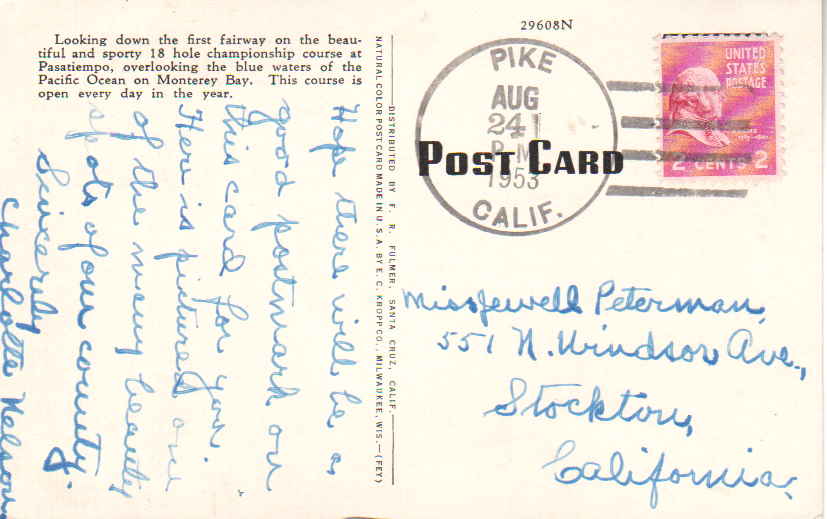 29608N
Looking down the first fairway on the beau-
tiful and sporty 18 hole championship course at
Pasatiempo, overlooking the blue waters of the
Pacific Ocean on Monterey Bay. This course is
open every day in the year.
Hope there will be a
good postmark on
this card for you.
Here is pictured one
of the many beauty
spots of our county.
Sincerely
Charlotte Nelson
DISTRIBUTED BY F. R. FULMER, SANTA CRUZ, CALIF.
NATURAL COLOR POST CARD MADE IN U.S.A. BY E. C. KROPP CO., MILWAUKEE, WIS.—(FEY)
PIKE
AUG
24
P.M
1953
CALIF.
POST CARD
UNITED
STATES
POSTAGE
2 CENTS 2
Miss Jewell Peterman,
551 N. Windsor Ave.,
Stockton,
California.